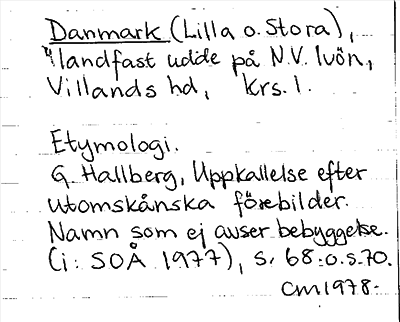 Danmark (Lilla o. Stora),
landfast udde på N.V. Ivön,
Villands hd, Krs. l.
Etymologi.
G. Hallberg, Uppkallelse efter
utomskånska förebilder.
Namn som ej avser bebyggelse.
(i: SOÅ 1977), s. 68 o.s. 70.
CM 1978.